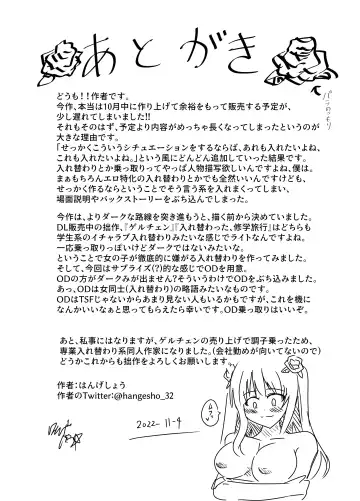 あとがき
バラのつもり
どうも！！作者です。
今作、本当は10月中に作り上げて余裕をもって販売する予定が、
少し遅れてしまいました！！
それもそのはず、予定より内容がめっちゃ長くなってしまったというのが
大きな理由です。
「せっかくこういうシチュエーションをするならば、あれも入れたいよね、
これも入れたいよね。」という風にどんどん追加していった結果です。
入れ替わりとか乗っ取りってやっぱ人物描写欲しいんですよね、僕は。
まぁもちろんエロ特化の入れ替わりとかでも全然いいんですけども、
せっかく作るならということでそう言う系を入れまくってしまい、
場面説明やバックストーリーをぶち込んでしまった。
今作は、よりダークな路線を突き進もうと、描く前から決めていました。
DL販売中の拙作、『ゲルチェン』『入れ替わった、修学旅行』はどちらも
学生系のイチャラブ入れ替わりみたいな感じでライトなんですよね。
一応乗っ取りっぽいけどダークではないみたいな。
ということで女の子が徹底的に嫌がる入れ替わりを作ってみました。
そして、今回はサプライズ(?)的な感じでODを用意。
ODの方がダークみが出ません？そういうわけでODをぶち込みました。
あっ、ODは女同士(入れ替わり)の略語みたいなものです。
ODはTSFじゃないからあまり見ない人もいるかもですが、これを機に
なんかいいなぁと思ってもらえたら幸いです。OD乗っ取りはいいぞ。
あと、私事にはなりますが、ゲルチェンの売り上げで調子乗ったため、
専業入れ替わり系同人作家になりました。(会社勤めが向いてないので)
どうかこれからも拙作をよろしくお願いします。
作者：はんげしょう
作者のTwitter:@hangesho_32
2022-11-4